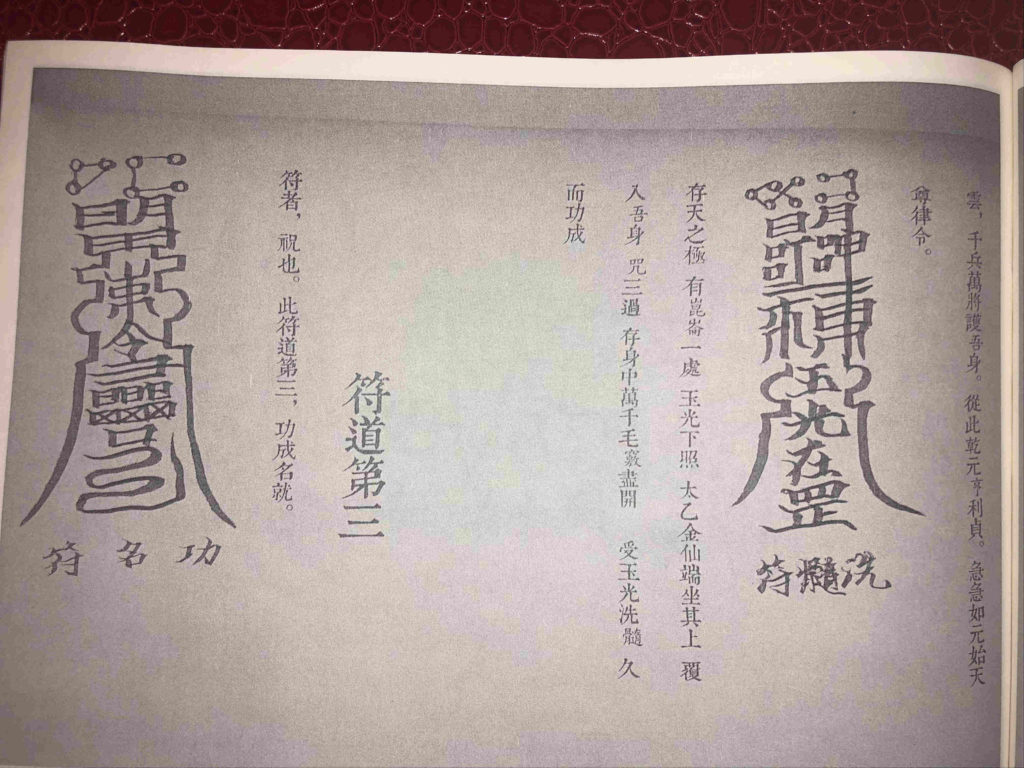 雲，千兵萬將護吾身。從此乾元亨利貞。急急如元始天
尊律令。
洗髓符
存天之極 有崑崙一處 玉光下照 太乙金仙端坐其上 覆
入吾身 咒三過 存身中萬千毛竅盡開 受玉光洗髓 久
而功成
符道第三
符者，祝也。此符道第三，功成名就。
功名符